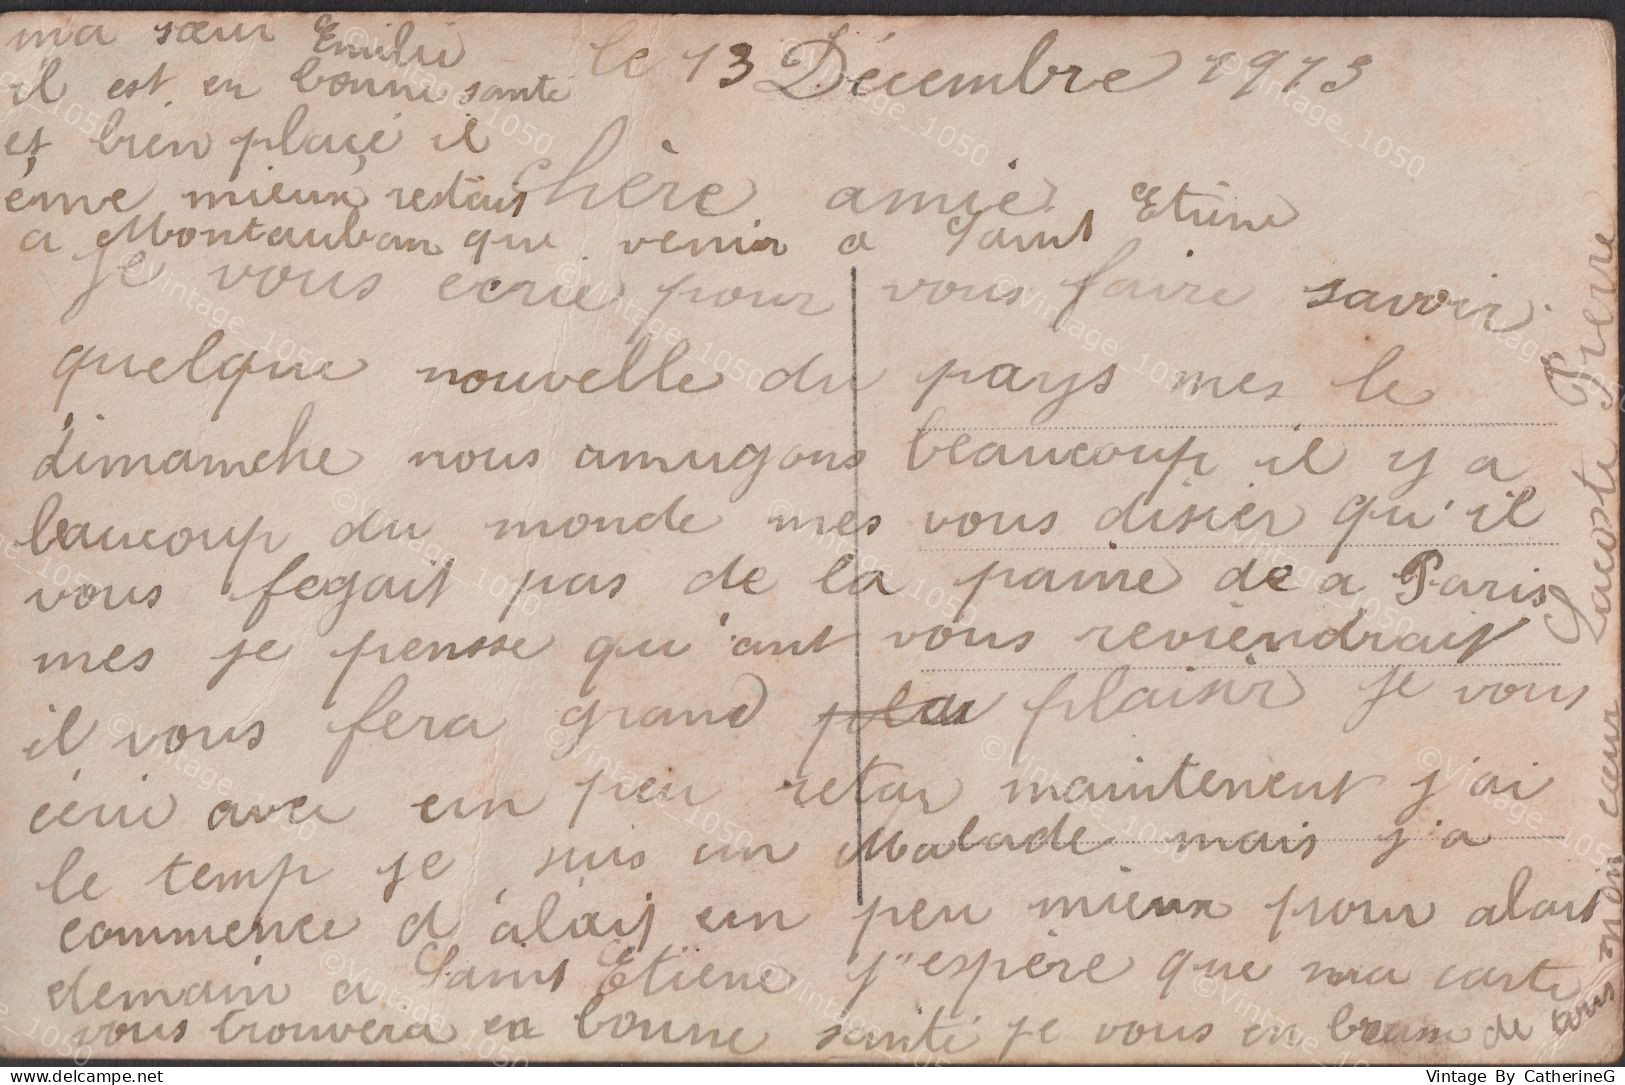 le 13 Décembre 1913
Chère amie
Je vous ecrie pour vous faire savoir
quelque nouvelle du pays mes le
dimamche nous amugons beaucoup il y a
baucoup du monde mes vous disier qu'il
vous fegait pas de la paine de a Paris
mes je pensse qu'ant vous reviendrait
il vous fera grand plai plaisir je vous
écrie avec un peu retar maintenent j'ai
le temp je suis un Malade mais j'a
commence d'alait un peu mieux pour alait
demain a Saint Etiene j"espère que ma carte
vous trouvera en bonne santé je vous en
de tous mon cœur Lacoste Pierre
ma sœur Emilie
il est en bonne sante
et bien plaçé il
éme mieux restais
a Montauban que venir a Saint Etiene
©Vintage_1050
Vintage By CatherineG